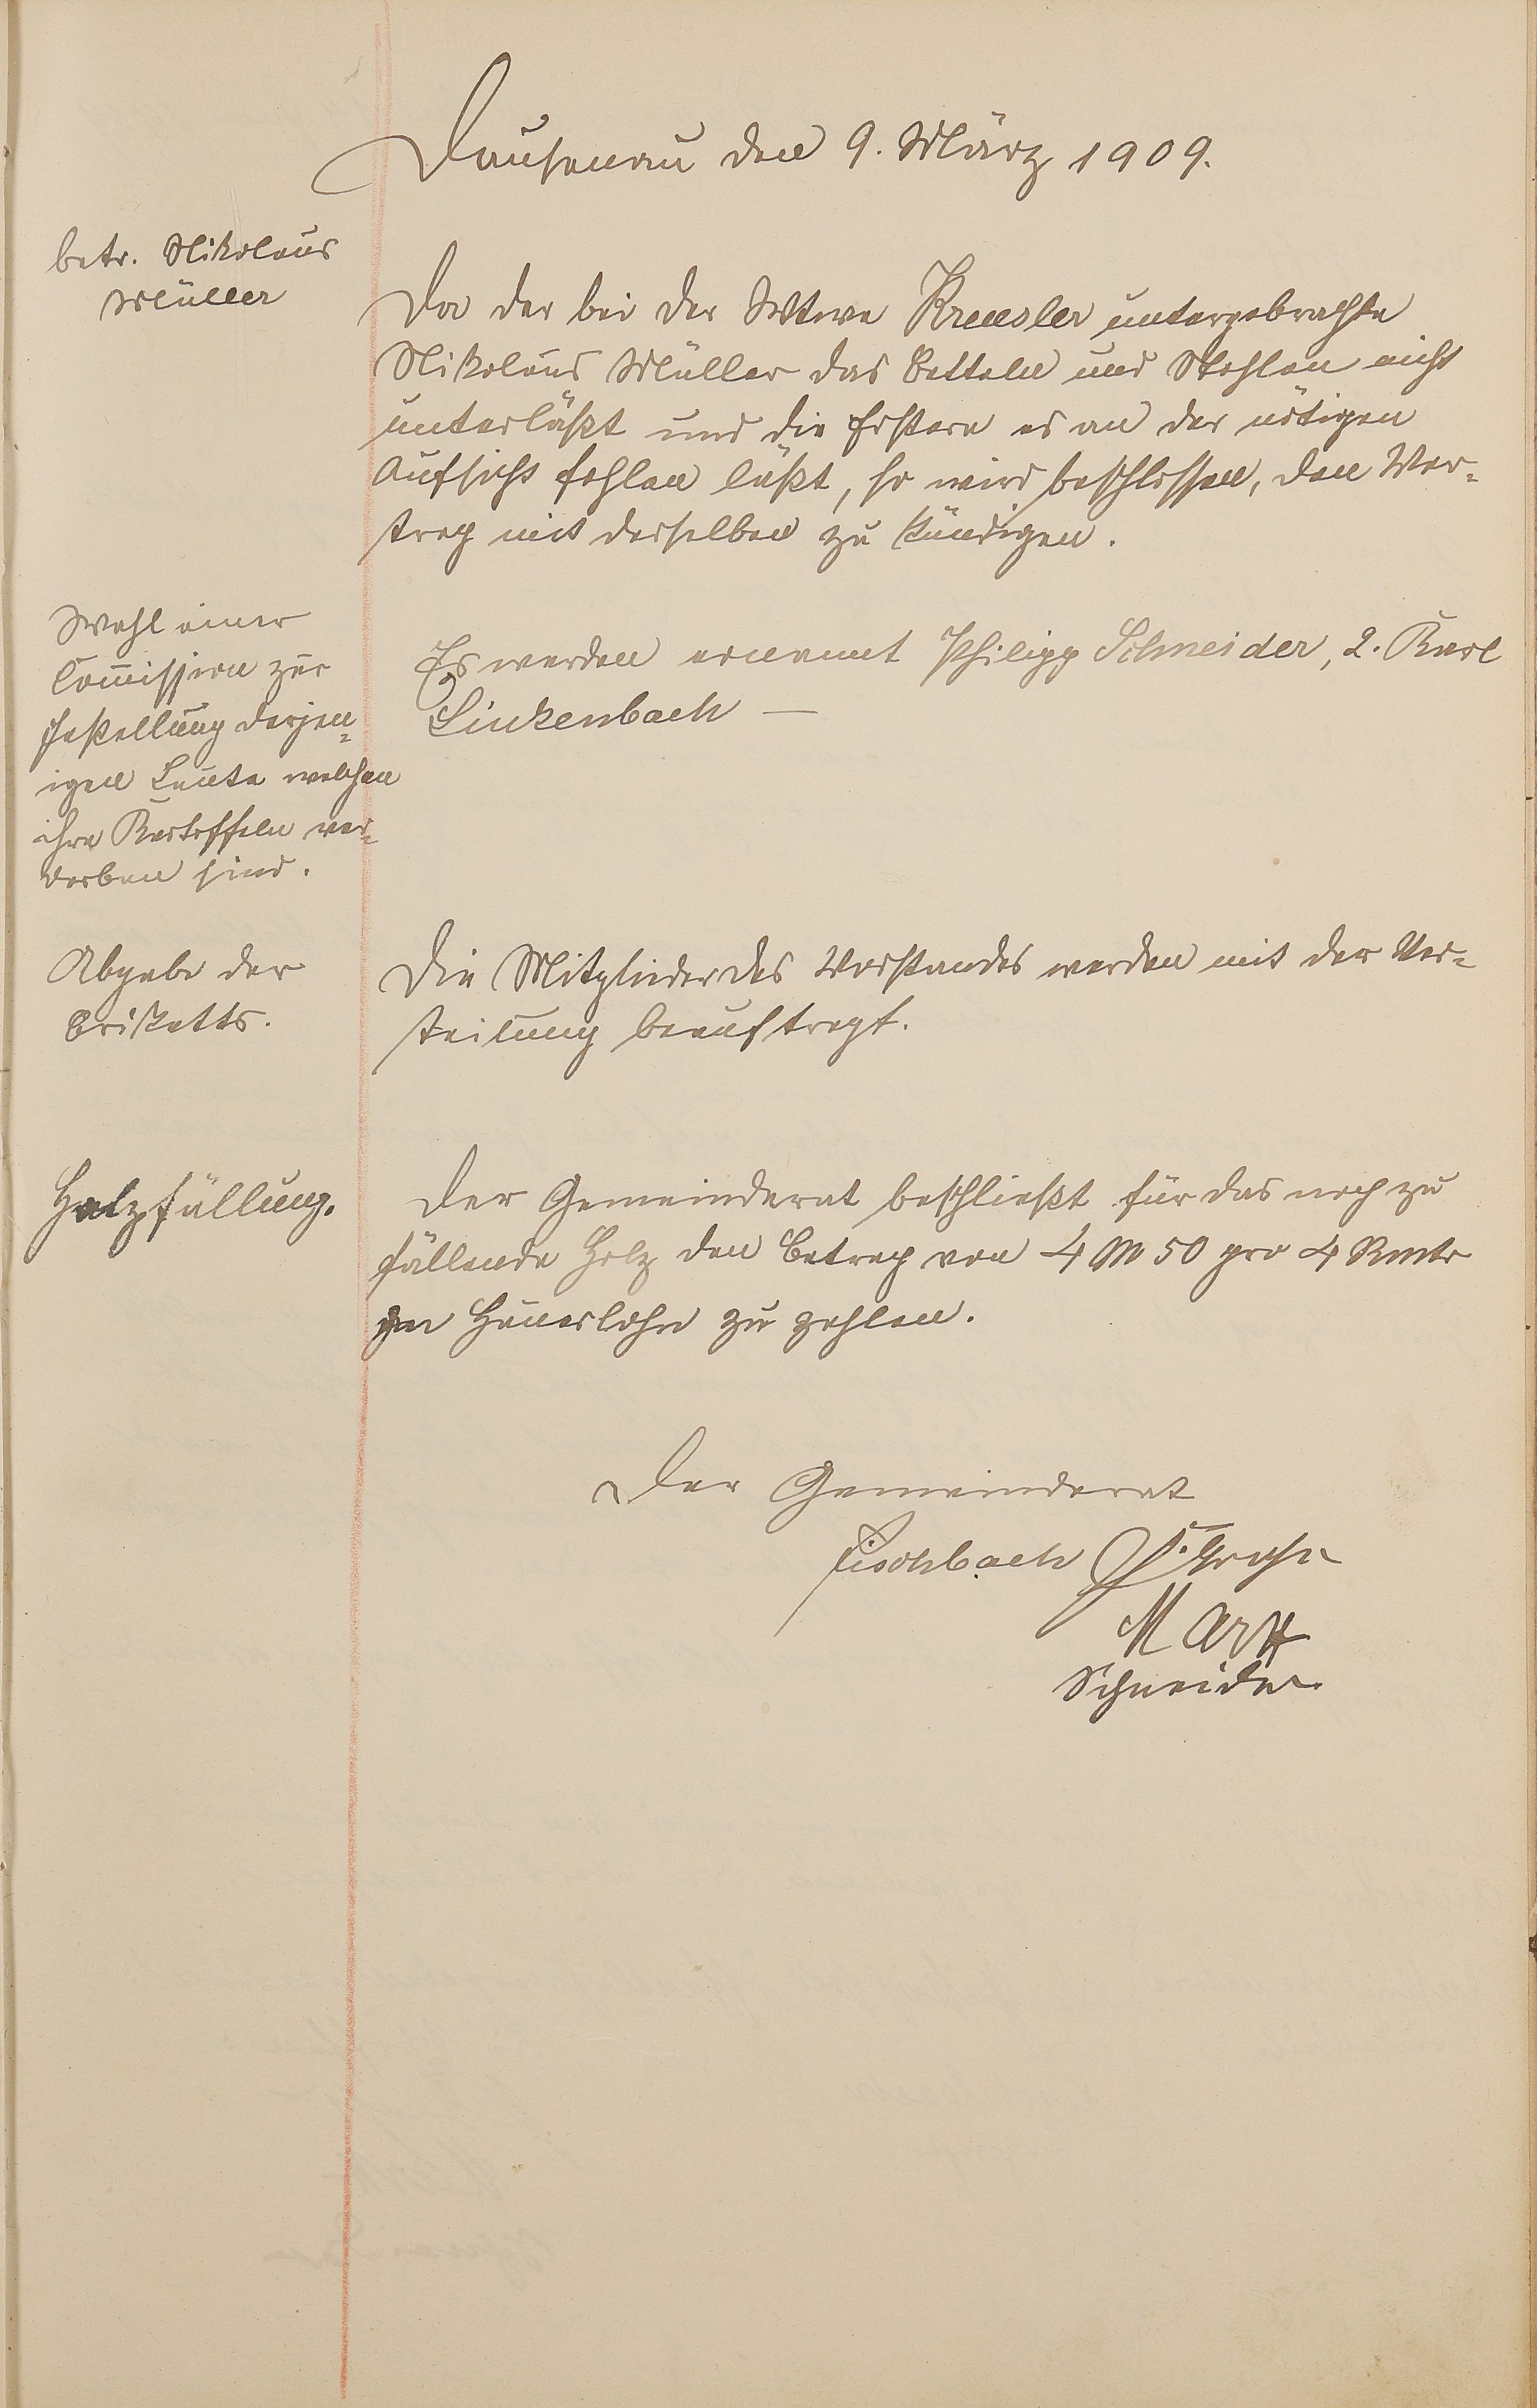 Dausenau den 9. März 1909.
betr. Nikolaus
Müller
Da der bei der Wtwe Kreusler untergebrachte
Nikolaus Müller das Betteln und Stehlen nicht
unterläßt und die Erstere es an der nötigen
Aufsicht fehlen läßt, so wird beschlossen, den Ver-
trag mit derselben zu kündigen.
Wahl einer
Commission zur
Festellung derjen-
igen Leute welchen
ihre Kartoffeln ver-
dorben sind.
Es werden ernannt Philipp Schneider, 2. Karl
Linkenbach —
Abgabe der
Briketts.
Die Mitglieder des Vorstandes werden mit der Ver-
teilung beauftragt.
Holzfällung.
Der Gemeinderat beschließt für das noch zu
fällende Holz den Betrag von 4 M 50 pro 4 Rmtr
an Hauerlohn zu zahlen.
Der Gemeinderat
Fischbach
Marx
Schneider